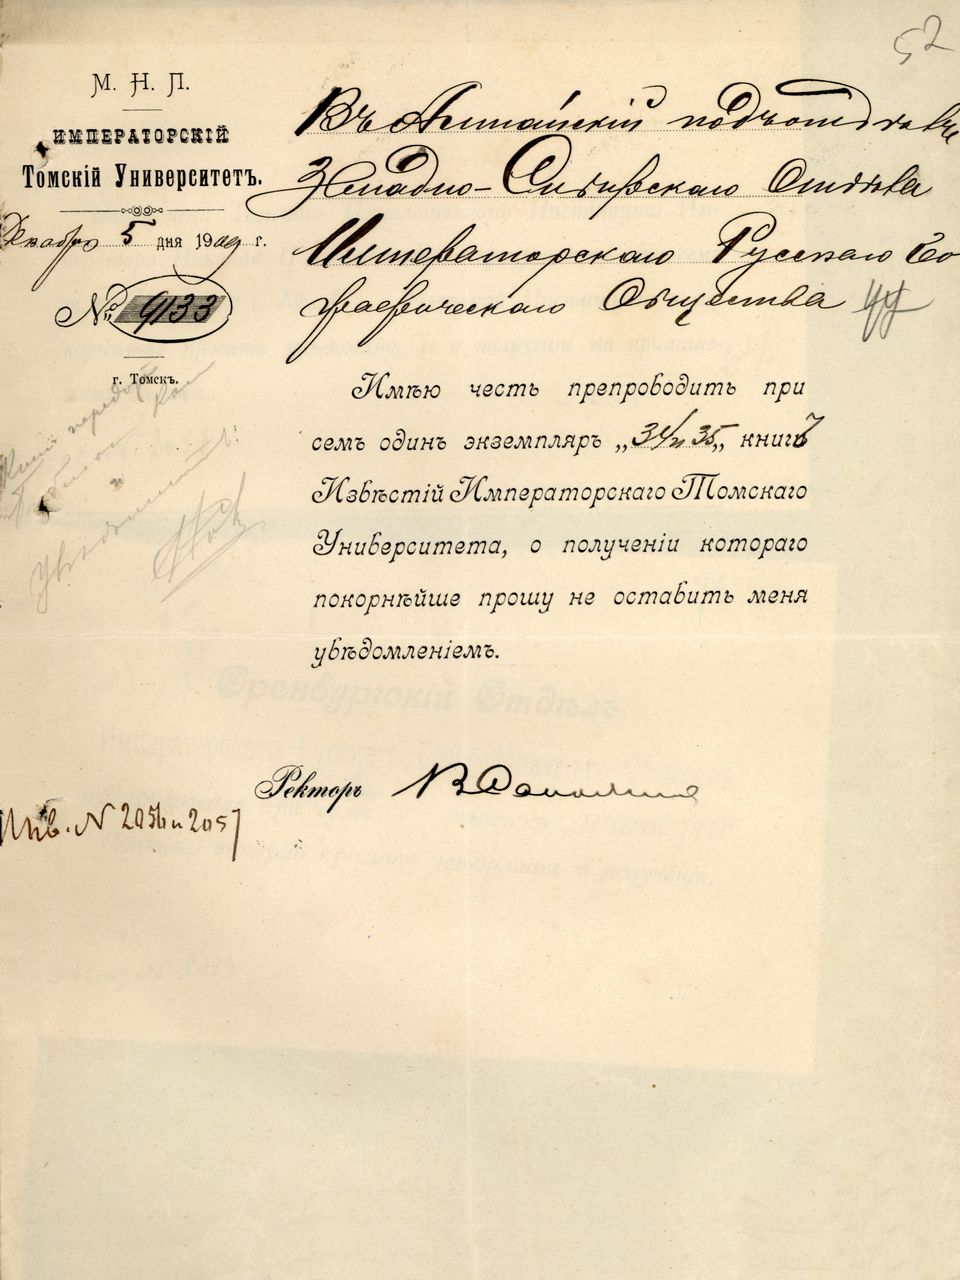 52
М. Н. П.
ИМПЕРАТОРСКІЙ
Томскій Университетъ.
Декабря 5 дня 1909 г.
№ 9133
г. Томскъ.
Въ Алтайскій подъотдѣлъ
Западно-Сибирскаго Отдѣла
Императорскаго Русскаго Гео
графическаго Общества
Имѣю честь препроводить при
семъ одинъ экземпляръ „34 и 35„ книгъ
Извѣстій Императорскаго Томскаго
Университета, о полученіи котораго
покорнѣйше прошу не оставить меня
увѣдомленіемъ.
Ректоръ
Инв. N 2056 и 2057
Оренбургскій Отдѣлъ